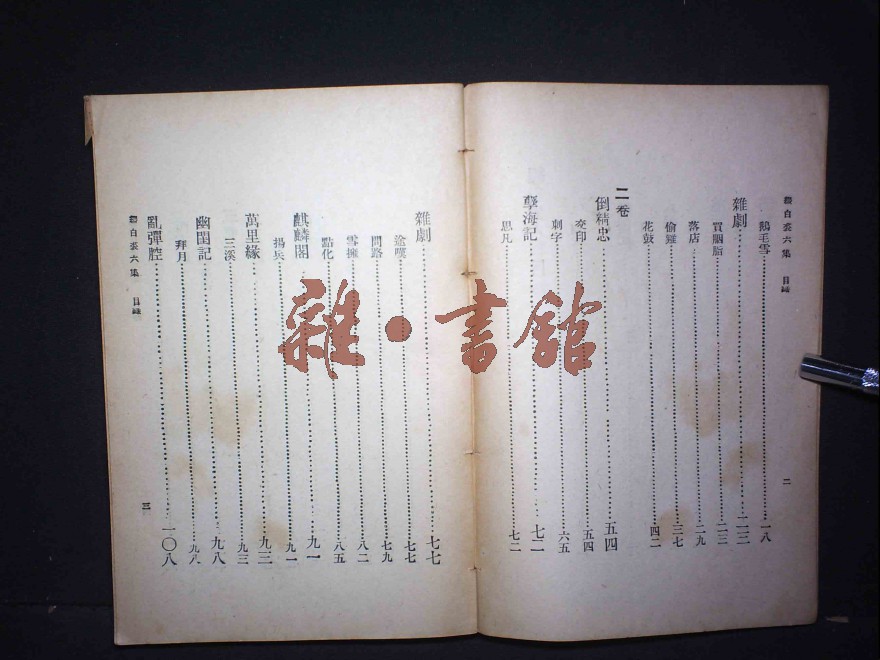 綴白裘六集 目錄
二
鵝毛雪 一八
雜劇 二三
買胭脂 二三
落店 二九
偷雞 三七
花鼓 四二
二卷
倒精忠 五四
交印 五四
刺字 六五
孽海記 七二
思凡 七二
雜劇 七七
途嘆 七七
問路 七九
雪擁 八二
點化 八五
麒麟閣 九一
揚兵 九一
萬里緣 九三
三溪 九三
幽閨記 九八
拜月 九八
亂彈腔 一〇八
綴白裘六集 目錄
三
雜·書館